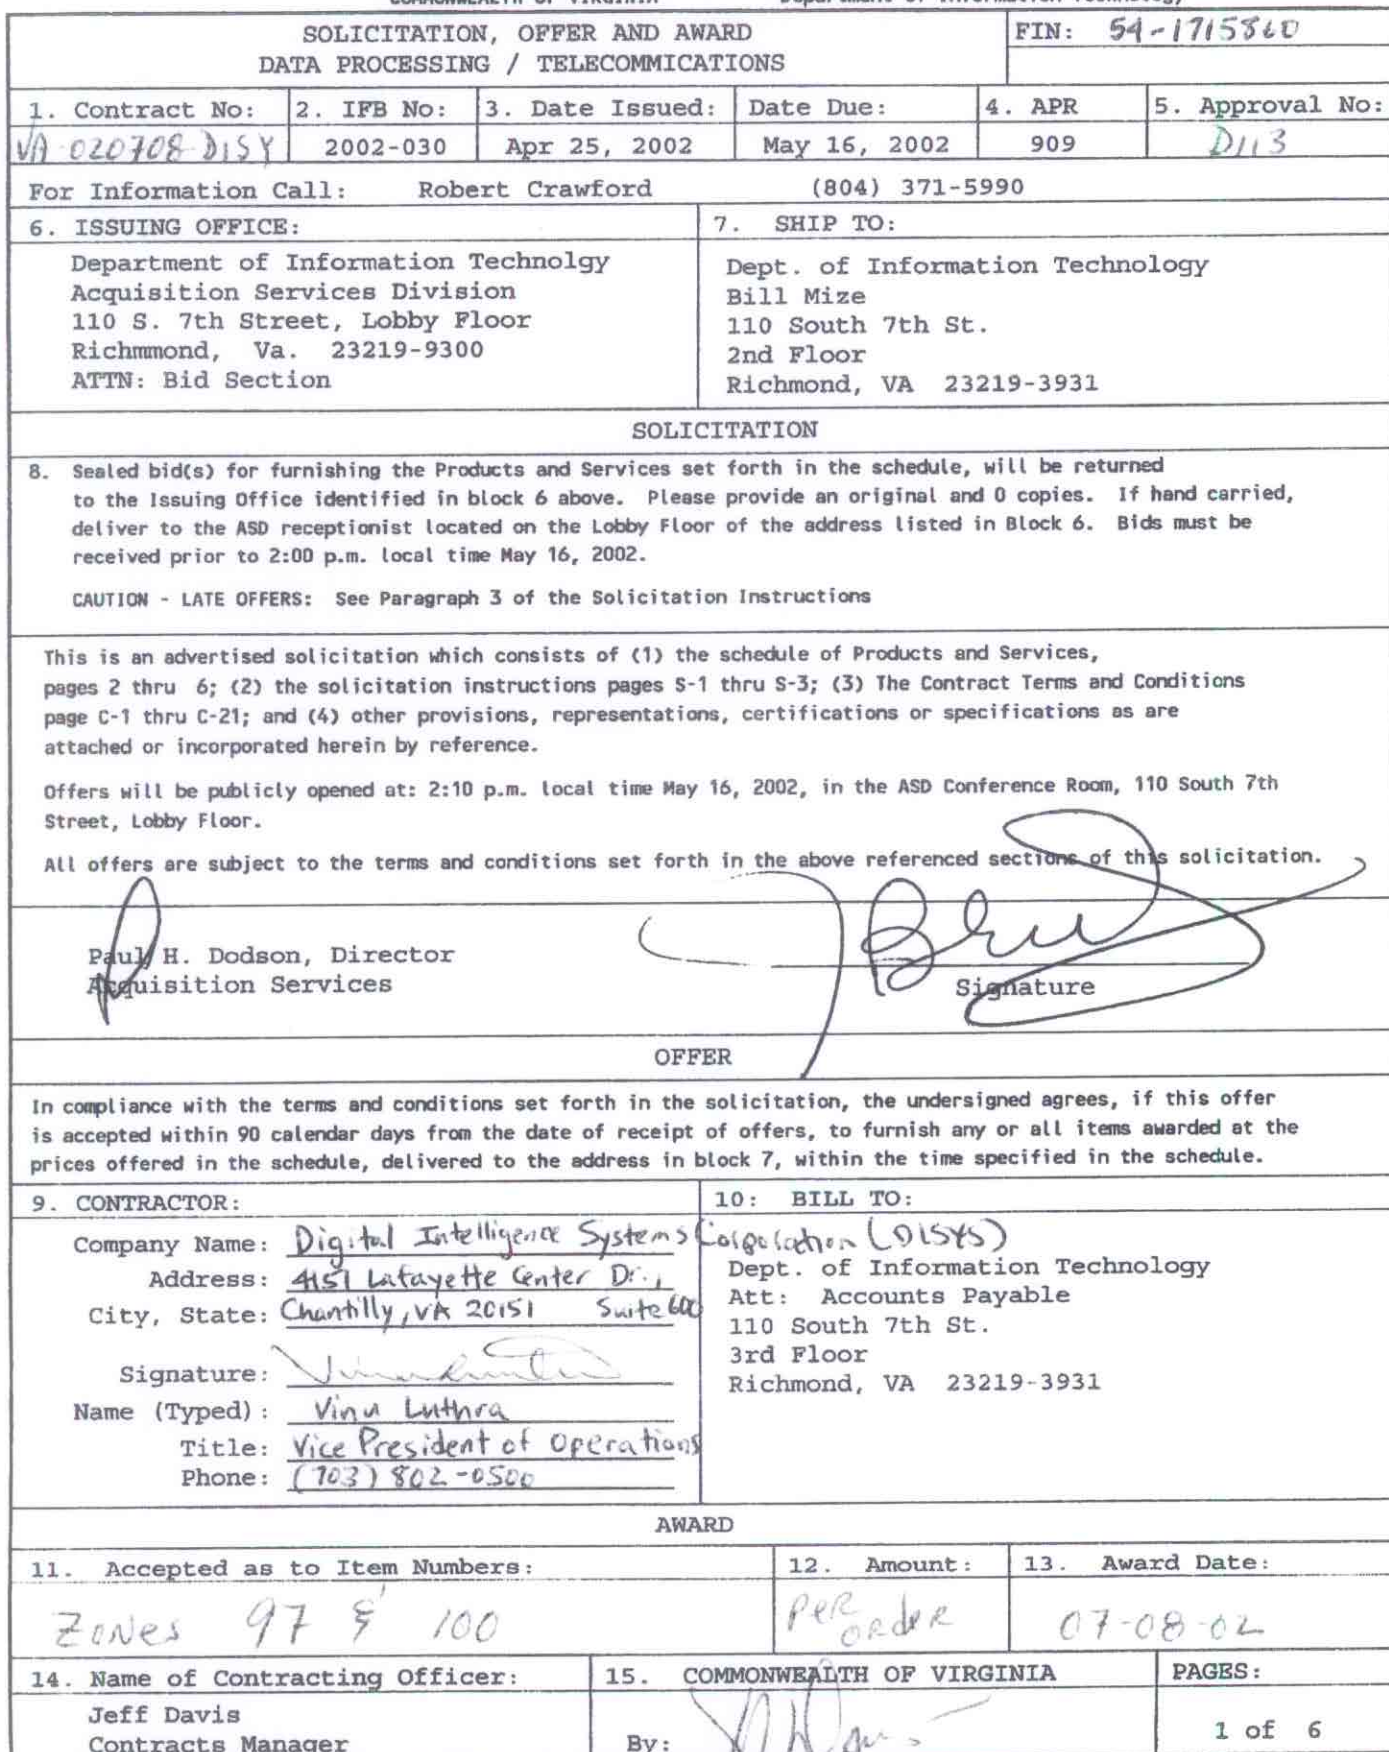 COMMONWEALTH OF VIRGINIA Department of Information Technology
SOLICITATION, OFFER AND AWARD
DATA PROCESSING / TELECOMMICATIONS
FIN: 54-1715860
1. Contract No: 2. IFB No: 3. Date Issued: Date Due: 4. APR 5. Approval No:
VA-020708-DISY 2002-030 Apr 25, 2002 May 16, 2002 909 D113
For Information Call: Robert Crawford (804) 371-5990
6. ISSUING OFFICE:
Department of Information Technolgy
Acquisition Services Division
110 S. 7th Street, Lobby Floor
Richmmond, Va. 23219-9300
ATTN: Bid Section
7. SHIP TO:
Dept. of Information Technology
Bill Mize
110 South 7th St.
2nd Floor
Richmond, VA 23219-3931
SOLICITATION
8. Sealed bid(s) for furnishing the Products and Services set forth in the schedule, will be returned
to the Issuing Office identified in block 6 above. Please provide an original and 0 copies. If hand carried,
deliver to the ASD receptionist located on the Lobby Floor of the address listed in Block 6. Bids must be
received prior to 2:00 p.m. local time May 16, 2002.
CAUTION - LATE OFFERS: See Paragraph 3 of the Solicitation Instructions
This is an advertised solicitation which consists of (1) the schedule of Products and Services,
pages 2 thru 6; (2) the solicitation instructions pages S-1 thru S-3; (3) The Contract Terms and Conditions
page C-1 thru C-21; and (4) other provisions, representations, certifications or specifications as are
attached or incorporated herein by reference.
Offers will be publicly opened at: 2:10 p.m. local time May 16, 2002, in the ASD Conference Room, 110 South 7th
Street, Lobby Floor.
All offers are subject to the terms and conditions set forth in the above referenced sections of this solicitation.
Paul H. Dodson, Director
Acquisition Services
Signature
OFFER
In compliance with the terms and conditions set forth in the solicitation, the undersigned agrees, if this offer
is accepted within 90 calendar days from the date of receipt of offers, to furnish any or all items awarded at the
prices offered in the schedule, delivered to the address in block 7, within the time specified in the schedule.
9. CONTRACTOR:
Company Name: Digital Intelligence Systems Corporation (DISYS)
Address: 4151 Lafayette Center Dr.,
City, State: Chantilly, VA 20151 Suite 600
Signature:
Name (Typed): Vinu Luthra
Title: Vice President of Operations
Phone: (703) 802-0500
10: BILL TO:
Dept. of Information Technology
Att: Accounts Payable
110 South 7th St.
3rd Floor
Richmond, VA 23219-3931
AWARD
11. Accepted as to Item Numbers: 12. Amount: 13. Award Date:
Zones 97 & 100 Per Order 07-08-02
14. Name of Contracting Officer: 15. COMMONWEALTH OF VIRGINIA PAGES:
Jeff Davis
Contracts Manager By: 1 of 6